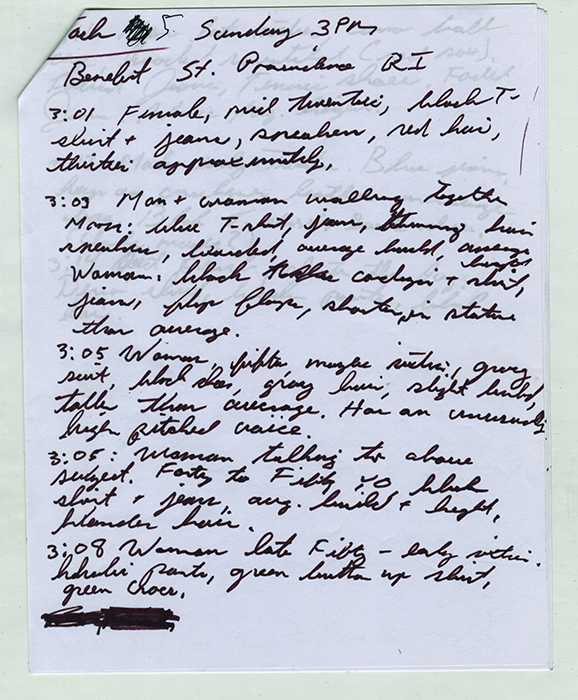 5 Sunday 3 PM
Benefit St. Providence RI
3:01 Female, mid twenties, black T-
shirt + jeans, sneakers, red hair,
thirties approximately.
3:03 Man + woman walking together
Man: blue T-shirt, jeans, hair
sneakers, bearded, average build, average height
Woman: black cardigan + shirt,
jeans, flip flops, shorter in stature
than average.
3:05 Woman, fifties maybe sixties, gray
suit, black shoes, gray hair, slight build,
taller than average. Has an unusually
high pitched voice.
3:05: Woman talking to above
subject. Forty to Fifty YO black
shirt + jeans, avg. build + height,
blonder hair.
3:08 Woman late Fifty - early sixties.
pants, green button up shirt,
green crocs.